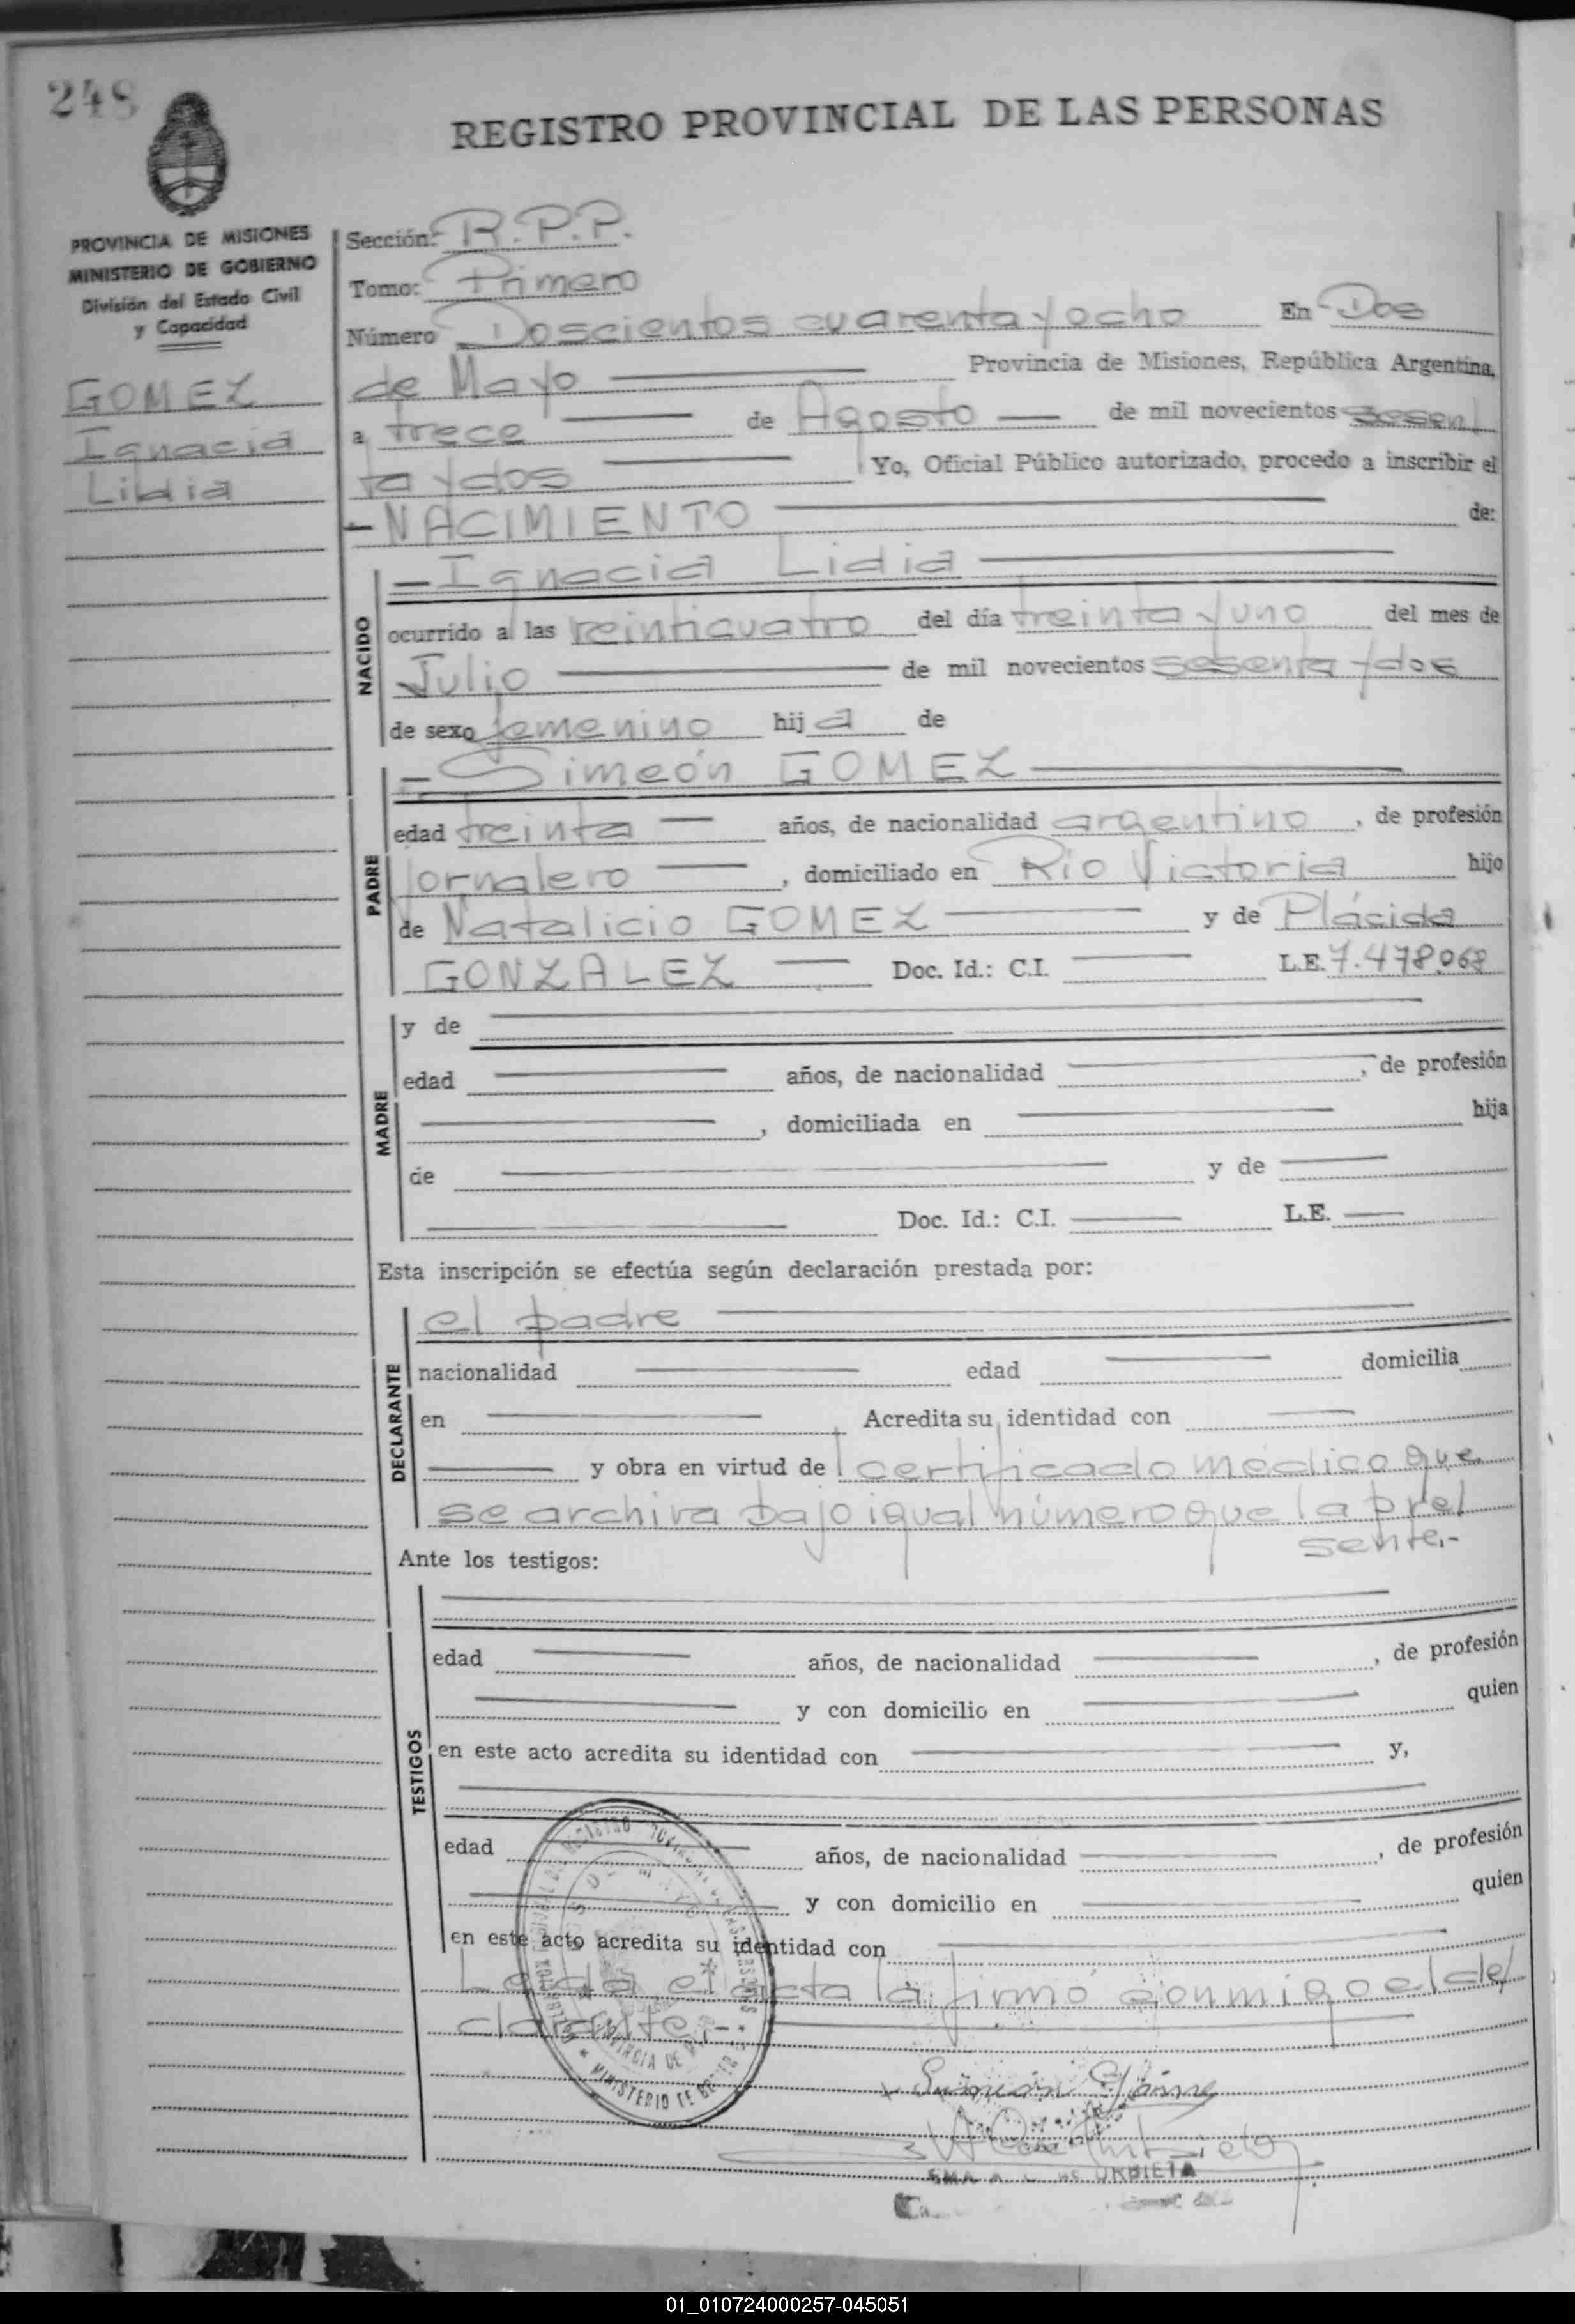 248
REGISTRO PROVINCIAL DE LAS PERSONAS
PROVINCIA DE MISIONES
MINISTERIO DE GOBIERNO
División del Estado Civil
y Capacidad
GOMEZ
Ignacia
Lidia
Sección: R.P.P.
Tomo: Primero
Número Doscientos cuarenta y ocho En Dos
de Mayo Provincia de Misiones, República Argentina,
a trece de Agosto de mil novecientos sesen
ta y dos Yo, Oficial Público autorizado, procedo a inscribir el
NACIMIENTO de:
NACIDO
Ignacia Lidia
ocurrido a las veinticuatro del día treinta y uno del mes de
Julio de mil novecientos sesenta y dos
de sexo femenino hij a de
PADRE
Simeón GOMEZ
edad treinta años, de nacionalidad argentino, de profesión
Jornalero, domiciliado en Río Victoria hijo
de Natalicio GOMEZ y de Plácida
GONZALEZ Doc. Id.: C.I. L.E. 7.478.068
MADRE
y de
edad años, de nacionalidad , de profesión
, domiciliada en hija
de y de
Doc. Id.: C.I. L.E.
Esta inscripción se efectúa según declaración prestada por:
DECLARANTE
el padre
nacionalidad edad domicilia
en Acredita su identidad con
y obra en virtud de certificado médico que
se archiva bajo igual número que la pre
sente.-
Ante los testigos:
TESTIGOS
edad años, de nacionalidad , de profesión
y con domicilio en quien
en este acto acredita su identidad con y,
edad años, de nacionalidad , de profesión
y con domicilio en quien
en este acto acredita su identidad con
Leída el acta la firmó conmigo el de
clarante.-
MINISTERIO DE GOBIERNO
Simeon Gómez
DE URBIETA
01_010724000257-045051